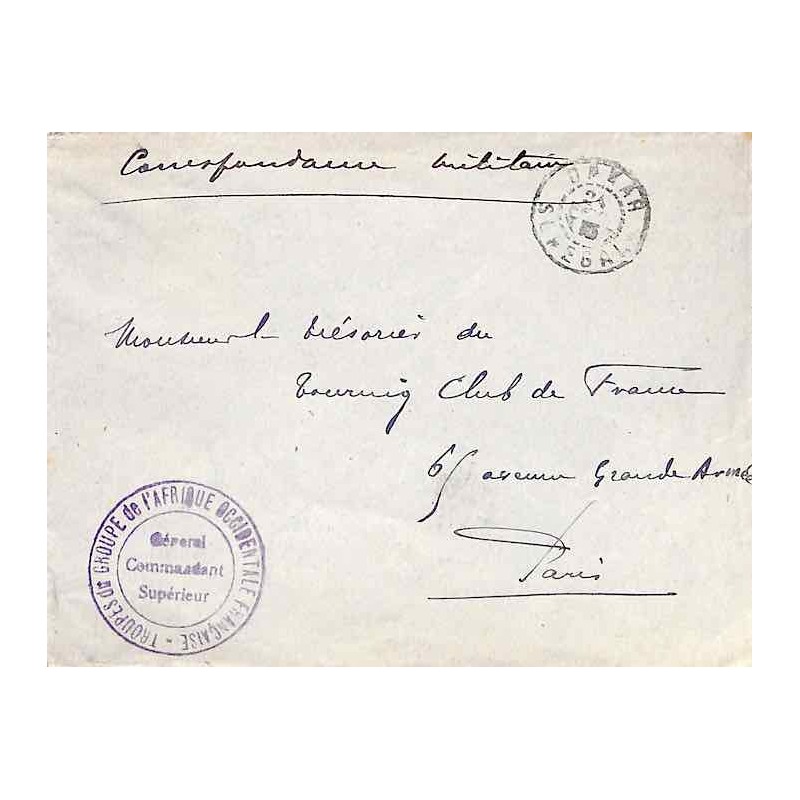 Correspondance militaire
DAKAR
SÉNÉGAL
Monsieur le trésorier du
Touring Club de France
65 avenue Grande Armée
Paris
TROUPES DU GROUPE de l'AFRIQUE OCCIDENTALE FRANÇAISE -
Général
Commandant
Supérieur